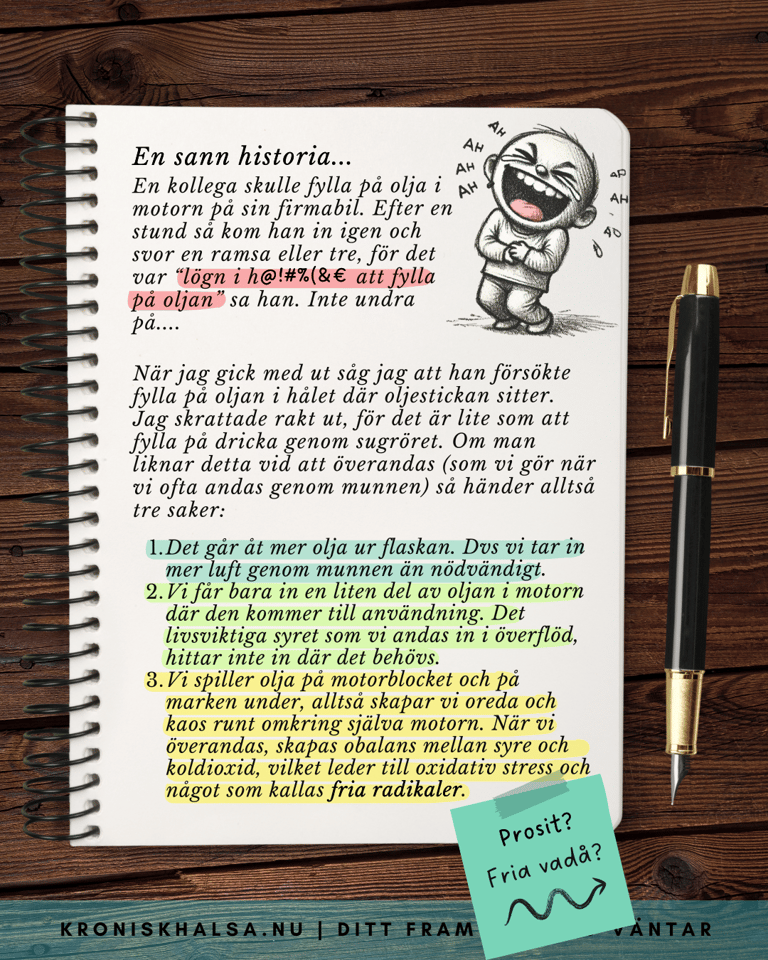 En sann historia...
En kollega skulle fylla på olja i
motorn på sin firmabil. Efter en
stund så kom han in igen och
svor en ramsa eller tre, för det
var "lögn i h@!#%(&€ att fylla
på oljan" sa han. Inte undra
på....
AH
AH
AH
AH
AH
AH
AH
När jag gick med ut såg jag att han försökte
fylla på oljan i hålet där oljestickan sitter.
Jag skrattade rakt ut, för det är lite som att
fylla på dricka genom sugröret. Om man
liknar detta vid att överandas (som vi gör när
vi ofta andas genom munnen) så händer alltså
tre saker:
1. Det går åt mer olja ur flaskan. Dvs vi tar in
mer luft genom munnen än nödvändigt.
2. Vi får bara in en liten del av oljan i motorn
där den kommer till användning. Det
livsviktiga syret som vi andas in i överflöd,
hittar inte in där det behövs.
3. Vi spiller olja på motorblocket och på
marken under, alltså skapar vi oreda och
kaos runt omkring själva motorn. När vi
överandas, skapas obalans mellan syre och
koldioxid, vilket leder till oxidativ stress och
något som kallas fria radikaler.
Prosit?
Fria vadå?
KRONISKHALSA.NU | DITT FRAM VÄNTAR